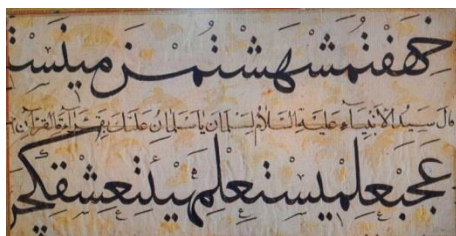 خهفتمشهشتمزمینست
قال سيد الأنبياء عليه السلام لسلمان يا سلمان عليك بقراءة القرآن
عجبعلمیستعلمهیئتعشقکچر